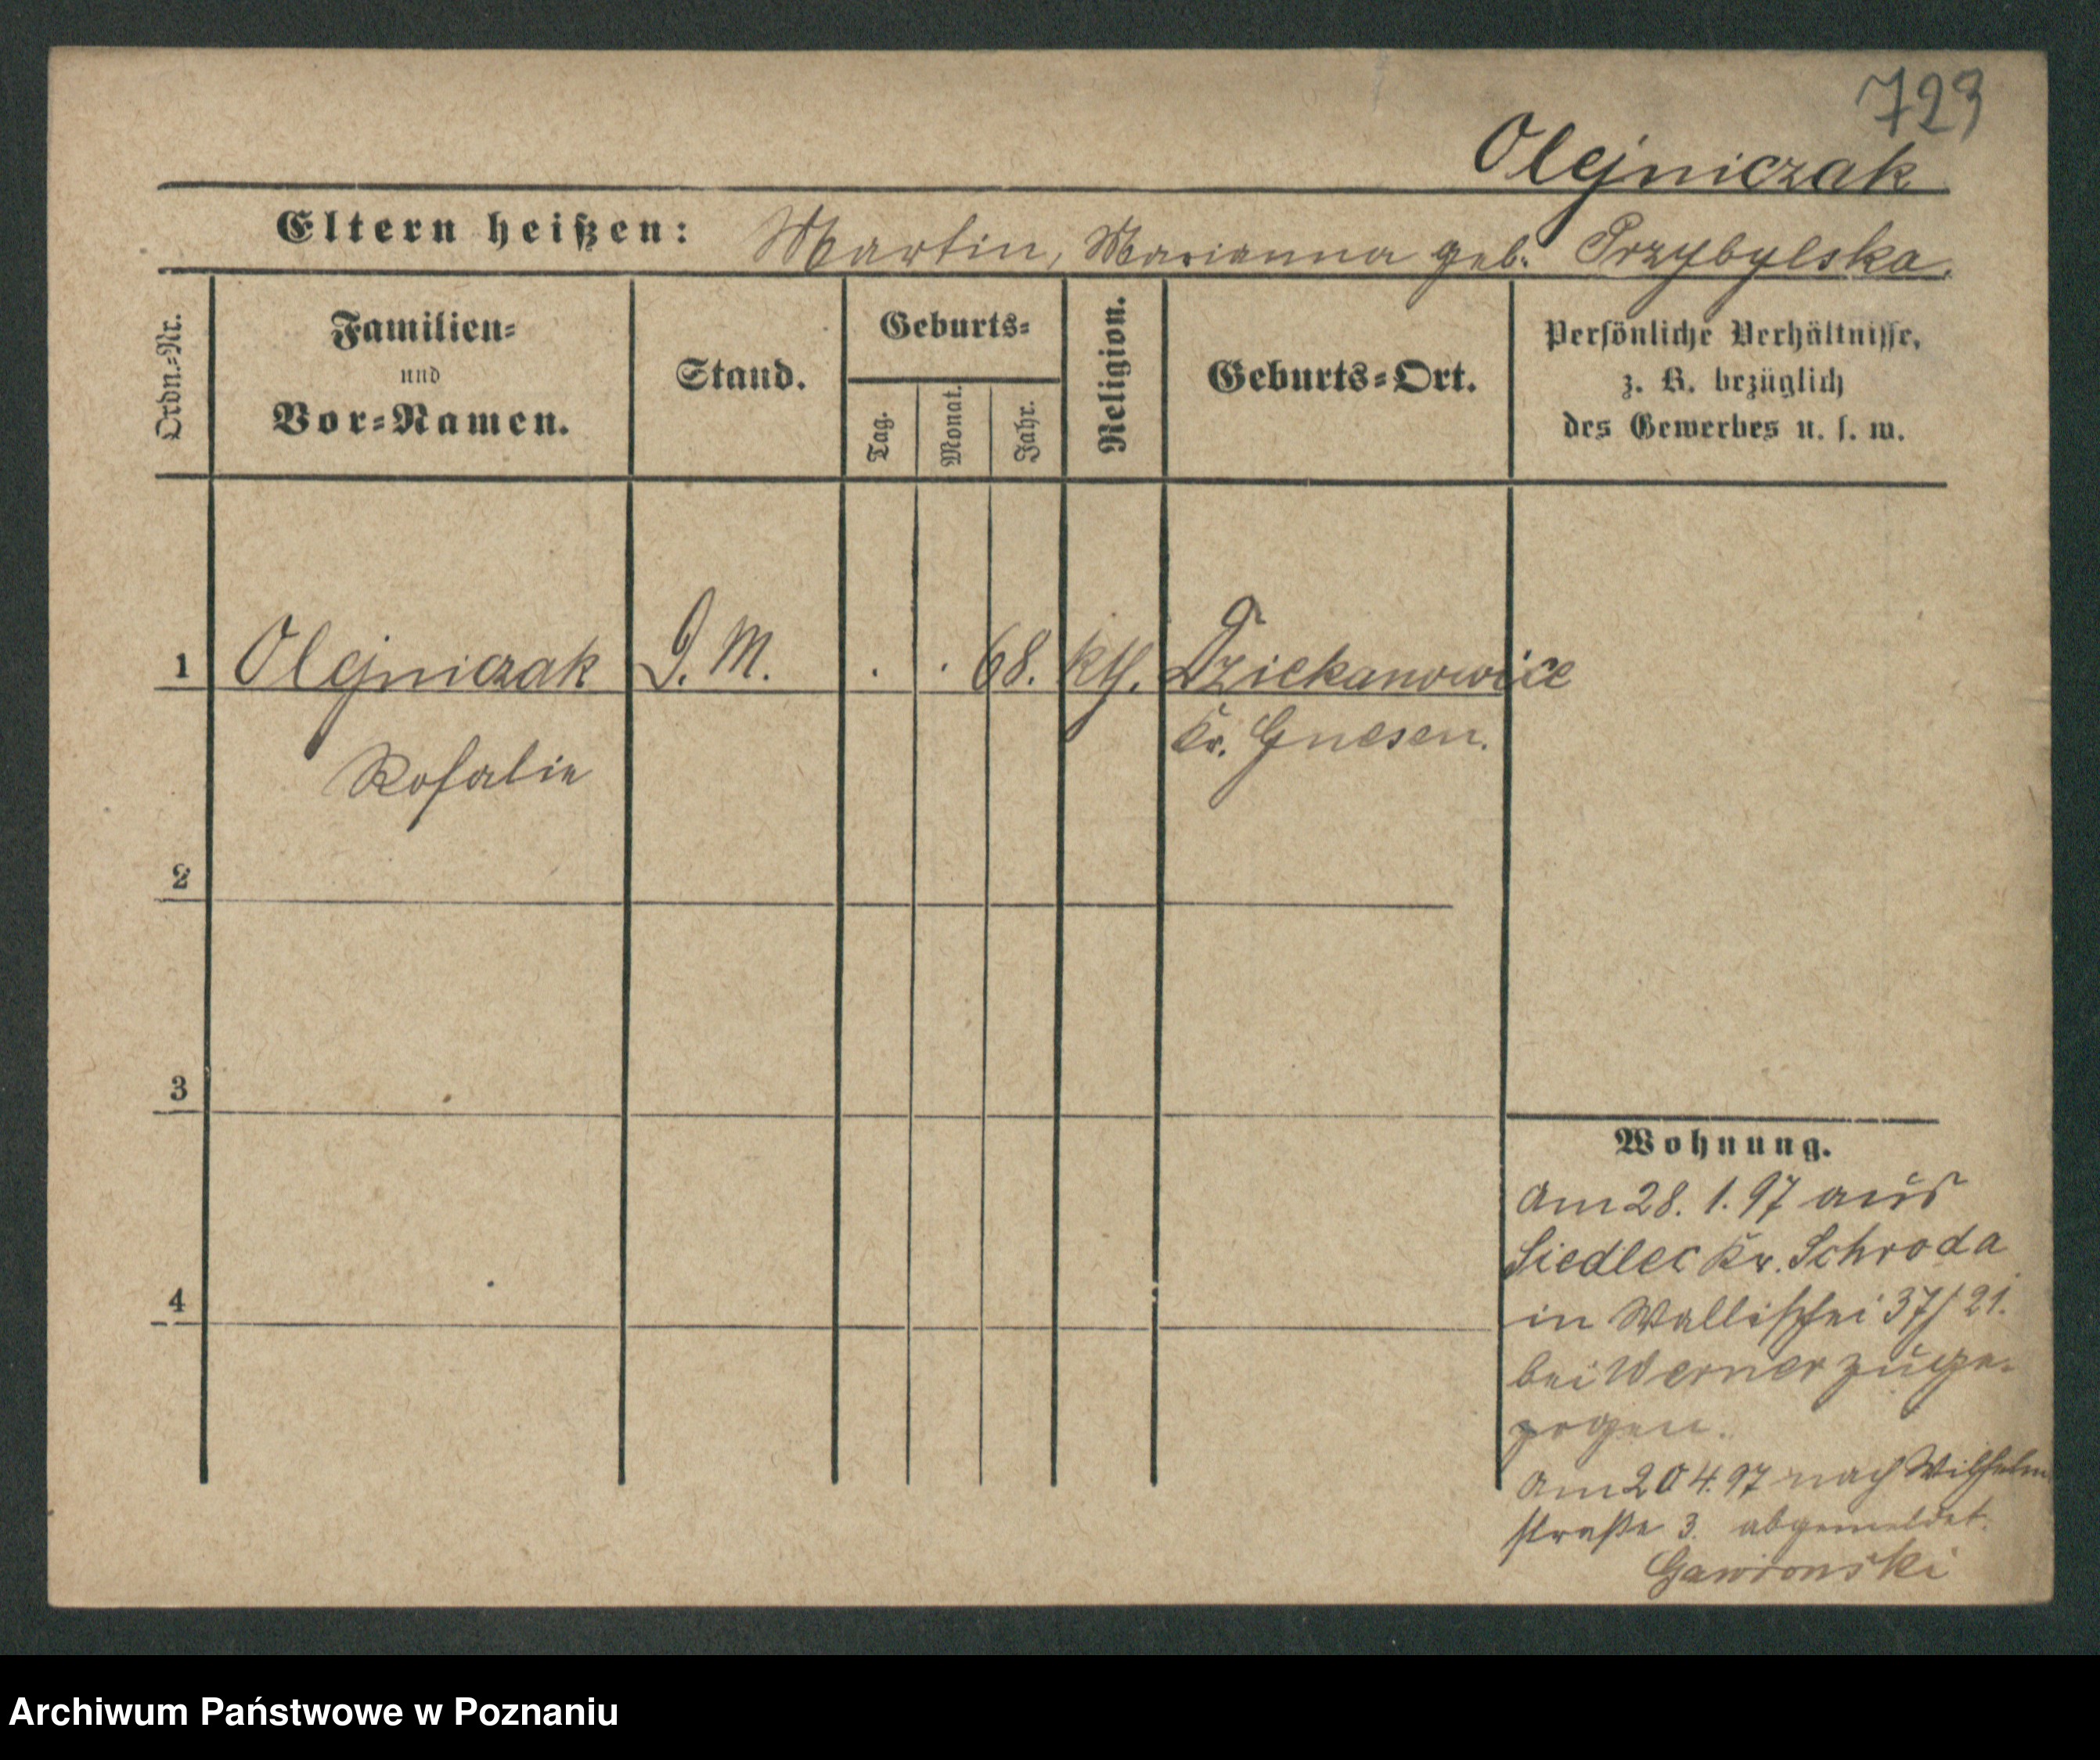 723
Olejniczak
Eltern heißen: Martin, Marianna geb. Przybylska.
Ordn.-Nr.
Familien-
und
Vor-Namen.
Stand.
Geburts-
Tag.
Monat.
Jahr.
Religion.
Geburts-Ort.
Persönliche Verhältnisse,
z. B. bezüglich
des Gewerbes u. s. w.
1 Olejniczak D. M. . . 68. kth. Dziekanowice
Rosalie Kr. Gnesen.
2
3
4
Wohnung.
Am 28. 1. 97 aus
Siedlec Kr. Schroda
in Wallischei 37/21.
bei Werner zuge-
zogen.
Am 20 4. 97 nach Wilhelm
straße 3. abgemeldet.
Gawronski
Archiwum Państwowe w Poznaniu